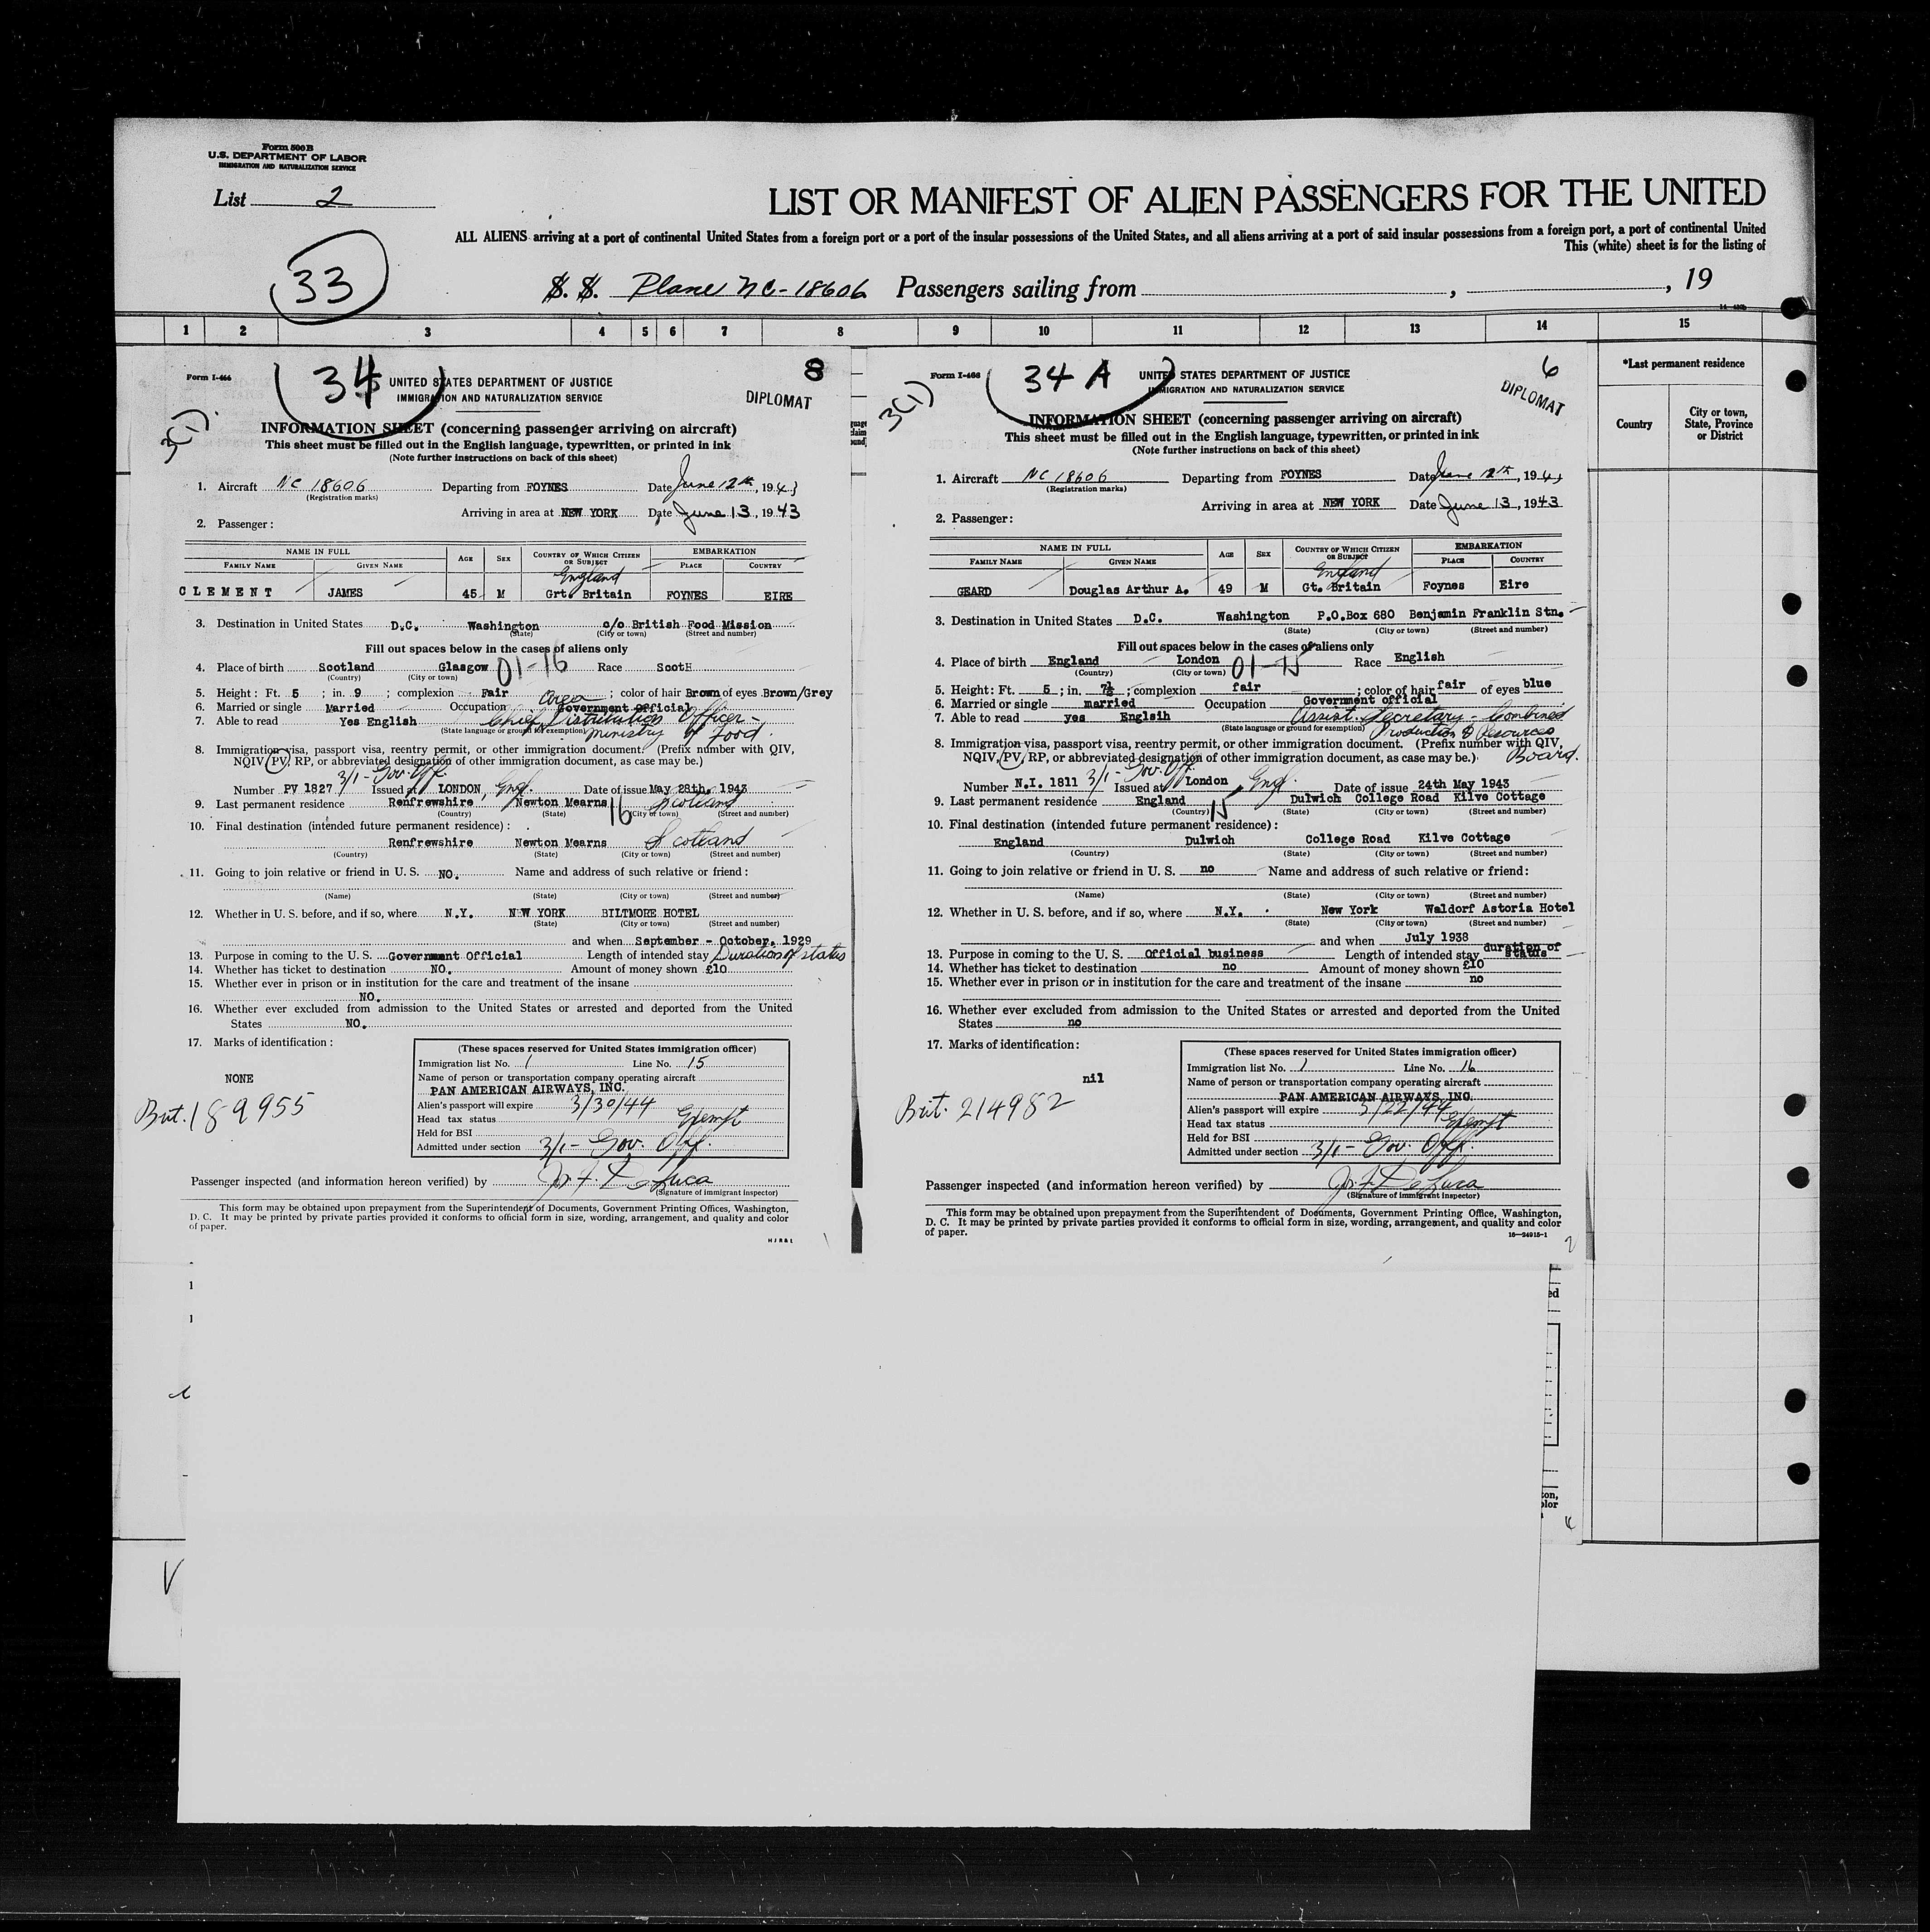 Form 500B
U.S. DEPARTMENT OF LABOR
IMMIGRATION AND NATURALIZATION SERVICE
List 2
LIST OR MANIFEST OF ALIEN PASSENGERS FOR THE UNITED
ALL ALIENS arriving at a port of continental United States from a foreign port or a port of the insular possessions of the United States, and all aliens arriving at a port of said insular possessions from a foreign port, a port of continental United
This (white) sheet is for the listing of
33
S. S. Plane NC-18606 Passengers sailing from , , 19
1 2 3 4 5 6 7 8 9 10 11 12 13 14 15
*Last permanent residence
Country
City or town, State, Province or District
Form I-466
34
8
UNITED STATES DEPARTMENT OF JUSTICE
IMMIGRATION AND NATURALIZATION SERVICE
DIPLOMAT
3(1)
INFORMATION SHEET (concerning passenger arriving on aircraft)
This sheet must be filled out in the English language, typewritten, or printed in ink
(Note further instructions on back of this sheet)
1. Aircraft NC 18606 Departing from FOYNES Date June 12th, 1943
(Registration marks)
Arriving in area at NEW YORK Date June 13, 1943
2. Passenger:
NAME IN FULL AGE SEX COUNTRY OF WHICH CITIZEN OR SUBJECT EMBARKATION
FAMILY NAME GIVEN NAME PLACE COUNTRY
England
CLEMENT JAMES 45 M Grt Britain FOYNES EIRE
3. Destination in United States D.C. Washington c/o British Food Mission
(State) (City or town) (Street and number)
Fill out spaces below in the cases of aliens only
4. Place of birth Scotland Glasgow 01-16 Race ScotH
(Country) (City or town)
5. Height: Ft. 5 ; in. 9 ; complexion Fair ; color of hair Brown of eyes Brown/Grey
6. Married or single Married Occupation Area Government Official
7. Able to read Yes English Chief Distribution Officer -
(State language or ground for exemption) Ministry of Food.
8. Immigration visa, passport visa, reentry permit, or other immigration document. (Prefix number with QIV,
NQIV, PV, RP, or abbreviated designation of other immigration document, as case may be.)
3/1 - Gov. Off.
Number PV 1827 Issued at LONDON, Eng. Date of issue May 28th. 1943
9. Last permanent residence Renfrewshire Newton Mearns 16 Scotland
(Country) (State) (City or town) (Street and number)
10. Final destination (intended future permanent residence):
Renfrewshire Newton Mearns Scotland
(Country) (State) (City or town) (Street and number)
11. Going to join relative or friend in U. S. NO. Name and address of such relative or friend:
(Name) (State) (City or town) (Street and number)
12. Whether in U. S. before, and if so, where N.Y. NEW YORK BILTMORE HOTEL
(State) (City or town) (Street and number)
and when September - October. 1929
13. Purpose in coming to the U. S. Government Official Length of intended stay Duration of status
14. Whether has ticket to destination NO. Amount of money shown £10
15. Whether ever in prison or in institution for the care and treatment of the insane
NO.
16. Whether ever excluded from admission to the United States or arrested and deported from the United
States NO.
17. Marks of identification:
NONE
Brit. 189955
(These spaces reserved for United States immigration officer)
Immigration list No. 1 Line No. 15
Name of person or transportation company operating aircraft
PAN AMERICAN AIRWAYS, INC.
Alien's passport will expire 3/30/44
Head tax status Exempt
Held for BSI
Admitted under section 3/1 - Gov. Off.
Passenger inspected (and information hereon verified) by Jos. F. DeLuca
(Signature of immigrant inspector)
This form may be obtained upon prepayment from the Superintendent of Documents, Government Printing Offices, Washington,
D. C. It may be printed by private parties provided it conforms to official form in size, wording, arrangement, and quality and color
of paper.
HJR&L
Form I-466
34 A
6
UNITED STATES DEPARTMENT OF JUSTICE
IMMIGRATION AND NATURALIZATION SERVICE
DIPLOMAT
3(1)
INFORMATION SHEET (concerning passenger arriving on aircraft)
This sheet must be filled out in the English language, typewritten, or printed in ink
(Note further instructions on back of this sheet)
1. Aircraft NC 18606 Departing from FOYNES Date June 12th, 1943
(Registration marks)
Arriving in area at NEW YORK Date June 13, 1943
2. Passenger:
NAME IN FULL AGE SEX COUNTRY OF WHICH CITIZEN OR SUBJECT EMBARKATION
FAMILY NAME GIVEN NAME PLACE COUNTRY
England
GEARD Douglas Arthur A. 49 M Gt. Britain Foynes Eire
3. Destination in United States D.C. Washington P.O.Box 680 Benjamin Franklin Stn.
(State) (City or town) (Street and number)
Fill out spaces below in the cases of aliens only
4. Place of birth England London 01-15 Race English
(Country) (City or town)
5. Height: Ft. 5 ; in. 7½ ; complexion fair ; color of hair fair of eyes blue
6. Married or single married Occupation Government official
7. Able to read yes Englsih Assist. Secretary - Combined
(State language or ground for exemption) Production & Resources
Board.
8. Immigration visa, passport visa, reentry permit, or other immigration document. (Prefix number with QIV,
NQIV, PV, RP, or abbreviated designation of other immigration document, as case may be.)
3/1 - Gov. Off.
Number N.I. 1811 Issued at London Engl. Date of issue 24th May 1943
9. Last permanent residence England 15 Dulwich College Road Kilve Cottage
(Country) (State) (City or town) (Street and number)
10. Final destination (intended future permanent residence):
England Dulwich College Road Kilve Cottage
(Country) (State) (City or town) (Street and number)
11. Going to join relative or friend in U. S. no Name and address of such relative or friend:
(Name) (State) (City or town) (Street and number)
12. Whether in U. S. before, and if so, where N.Y. New York Waldorf Astoria Hotel
(State) (City or town) (Street and number)
and when July 1938
13. Purpose in coming to the U. S. Official business Length of intended stay duration of status
14. Whether has ticket to destination no Amount of money shown £10
15. Whether ever in prison or in institution for the care and treatment of the insane no
16. Whether ever excluded from admission to the United States or arrested and deported from the United
States no
17. Marks of identification:
nil
Brit. 214982
(These spaces reserved for United States immigration officer)
Immigration list No. 1 Line No. 16
Name of person or transportation company operating aircraft
PAN AMERICAN AIRWAYS, INC.
Alien's passport will expire 3/22/44
Head tax status Exempt
Held for BSI
Admitted under section 3/1 - Gov. Off.
Passenger inspected (and information hereon verified) by Jos. F. DeLuca
(Signature of immigrant inspector)
This form may be obtained upon prepayment from the Superintendent of Documents, Government Printing Office, Washington,
D. C. It may be printed by private parties provided it conforms to official form in size, wording, arrangement, and quality and color
of paper.
16—24915-1
2